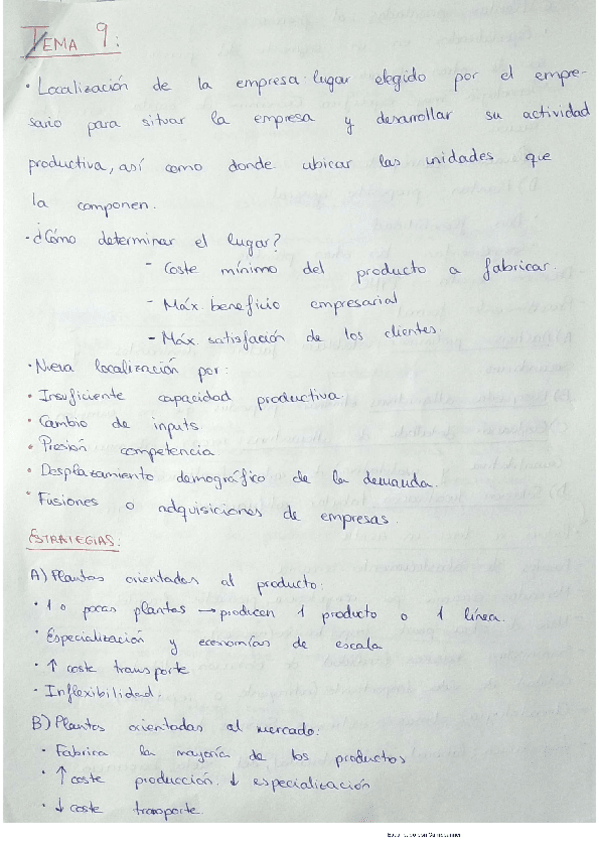 TEMA 9:
· Localización de la empresa: lugar elegido por el empre-
sario para situar la empresa y desarrollar su actividad
productiva, así como donde ubicar las unidades que
la componen.
· ¿Cómo determinar el lugar?
- Coste mínimo del producto a fabricar.
- Máx. beneficio empresarial
- Máx. satisfacción de los clientes.
· Nueva localización por:
· Insuficiente capacidad productiva.
· Cambio de inputs
· Presión competencia
· Desplazamiento demográfico de la demanda.
· Fusiones o adquisiciones de empresas.
ESTRATEGIAS:
A) Plantas orientadas al producto:
· 1 o pocas plantas → producen 1 producto o 1 línea.
· Especialización y economías de escala
· ↑ coste transporte
- Inflexibilidad.
B) Plantas orientadas al mercado:
· Fabrica la mayoría de los productos
· ↑ coste producción. ↓ especialización
· ↓ coste transporte.